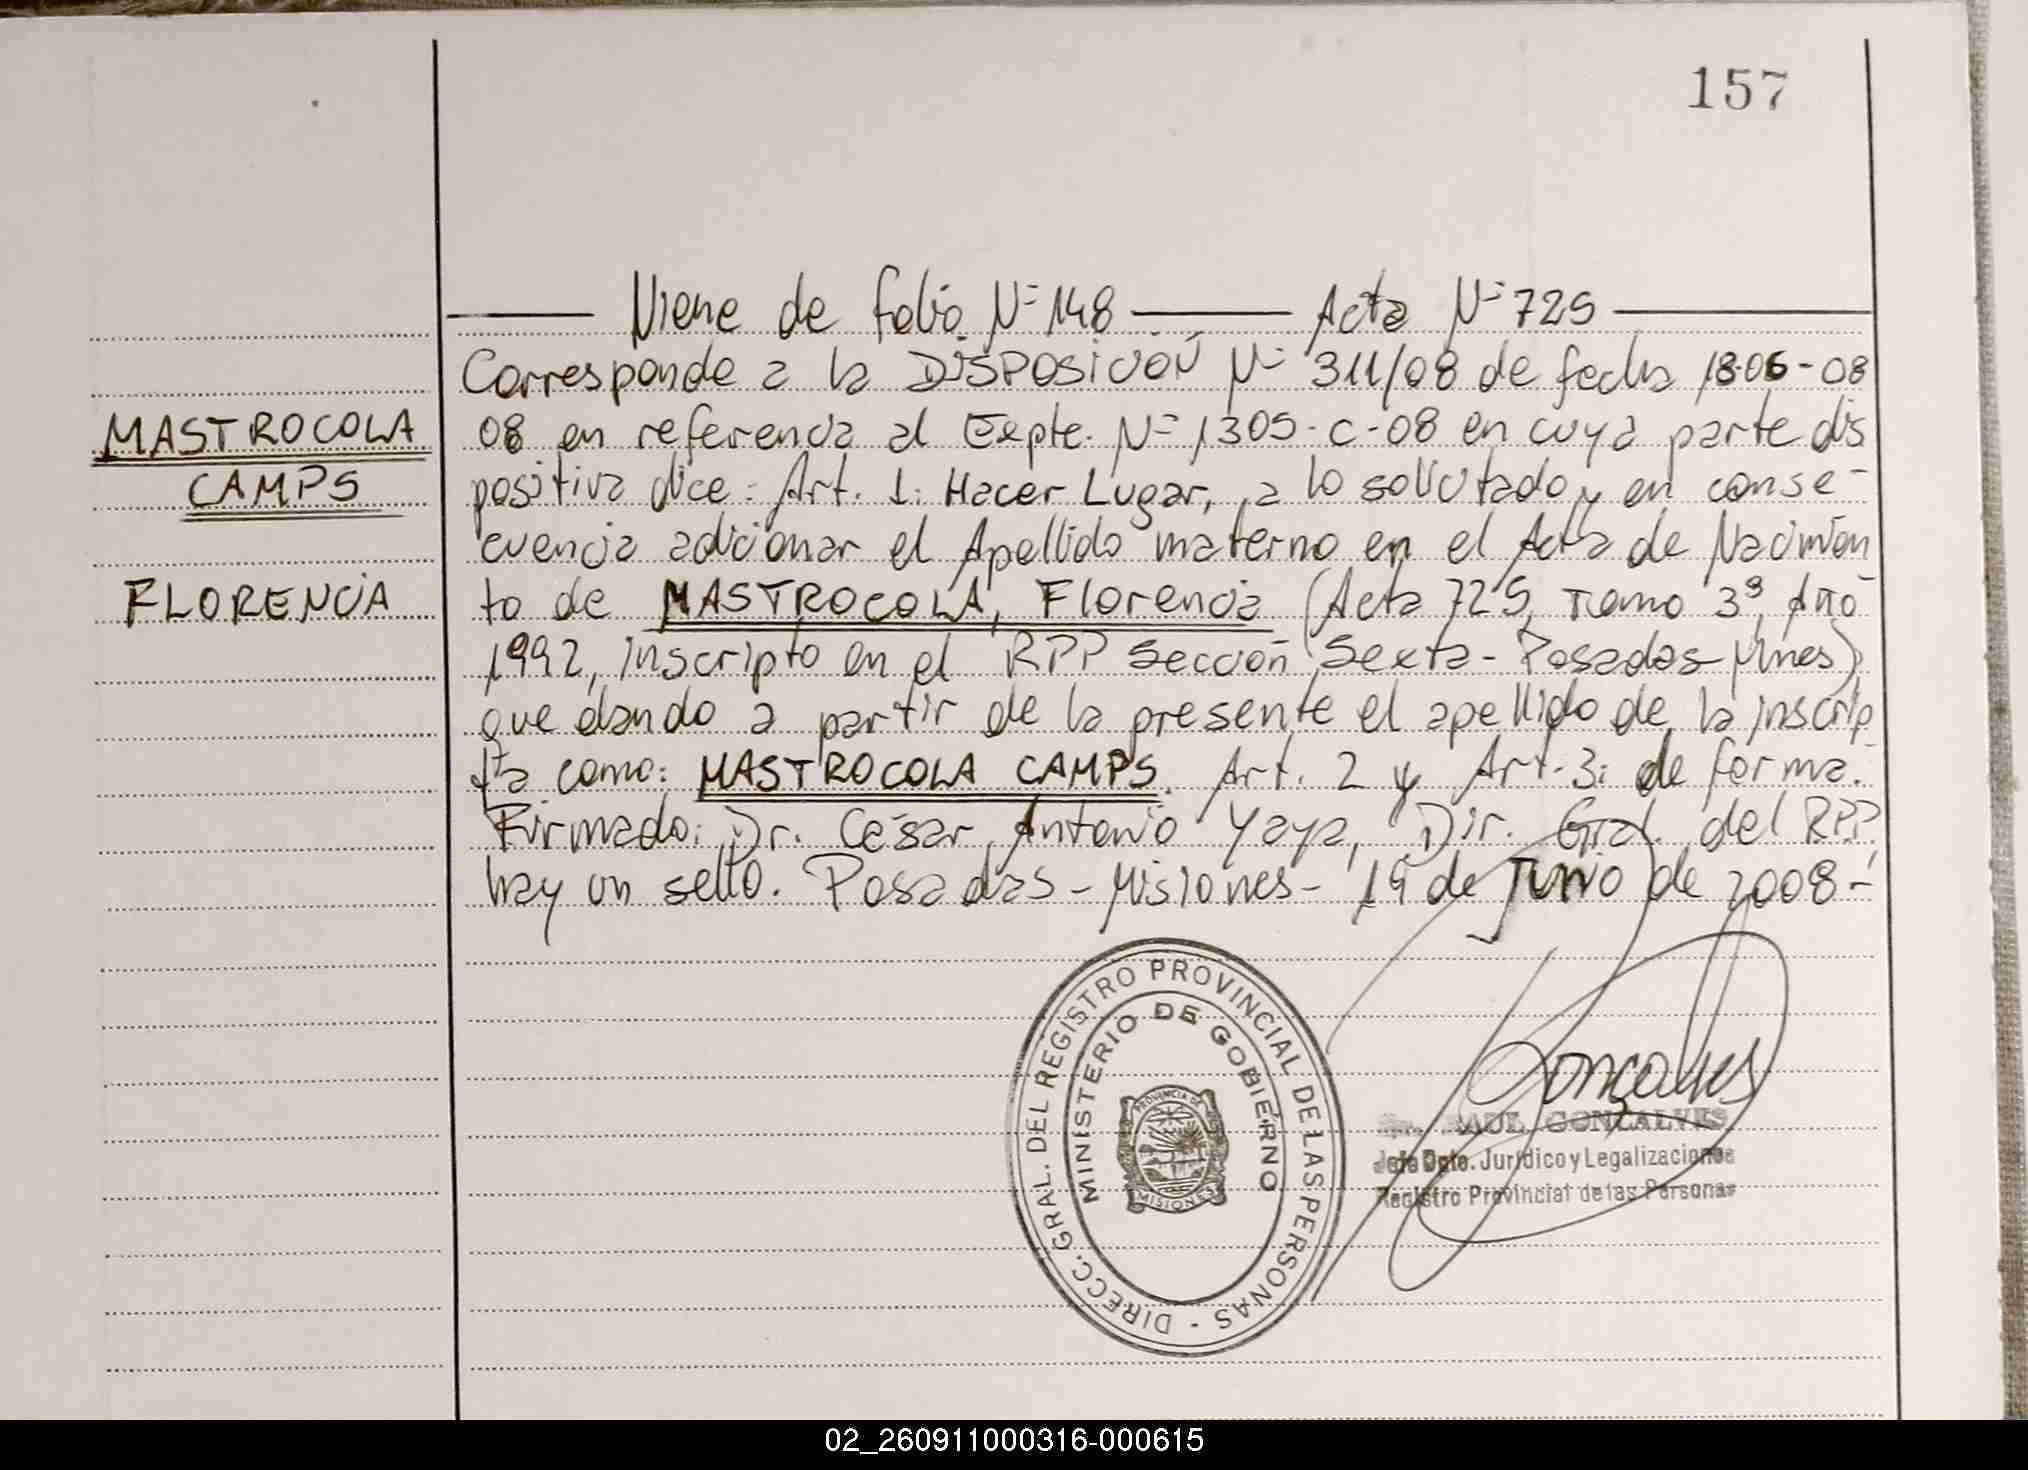 157
Viene de folio Nº 148 Acta Nº 725
Corresponde a la DISPOSICIÓN Nº 311/08 de fecha 18-06-08
MASTROCOLA
08 en referencia al Expte. Nº 1305-C-08 en cuya parte dis
CAMPS
positiva dice: Art. 1: Hacer Lugar, a lo solicitado y en conse-
cuencia adicionar el Apellido materno en el Acta de Nacimien
FLORENCIA
to de MASTROCOLA, Florencia (Acta 725, Tomo 3º, Año
1992, inscripto en el RPP Sección Sexta - Posadas - Mnes)
quedando a partir de la presente el apellido de la inscrip
ta como: MASTROCOLA CAMPS. Art. 2 y Art. 3: de forma.
Firmado: Dr. César Antonio Yaya, Dir. Gral. del RPP,
hay un sello. Posadas - Misiones - 19 de Junio de 2008-
DIRECC. GRAL. DEL REGISTRO PROVINCIAL DE LAS PERSONAS -
MINISTERIO DE GOBIERNO
PROVINCIA DE
MISIONES
Gonçalves
RAUL GONCALVES
Jefe Dpto. Jurídico y Legalizaciones
Registro Provincial de las Personas
02_260911000316-000615